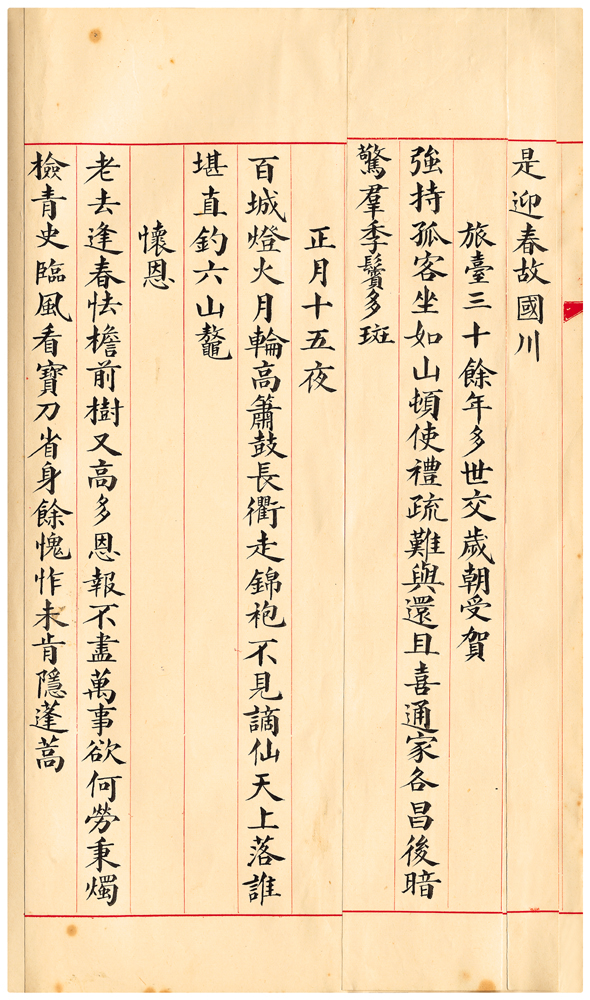 是迎春故國川
旅臺三十餘年多世交歲朝受賀
強持孤客坐如山頓使禮疏難與還且喜通家各昌後暗
驚羣季鬢多斑
正月十五夜
百城燈火月輪高簫鼓長衢走錦袍不見謫仙天上落誰
堪直釣六山鼇
懷恩
老去逢春怯檐前樹又高多恩報不盡萬事欲何勞秉燭
檢青史臨風看寶刀省身餘愧怍未肯隱蓬蒿